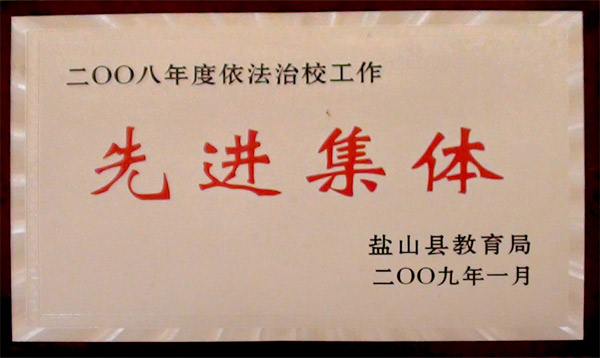 二〇〇八年度依法治校工作
先进集体
盐山县教育局
二〇〇九年一月